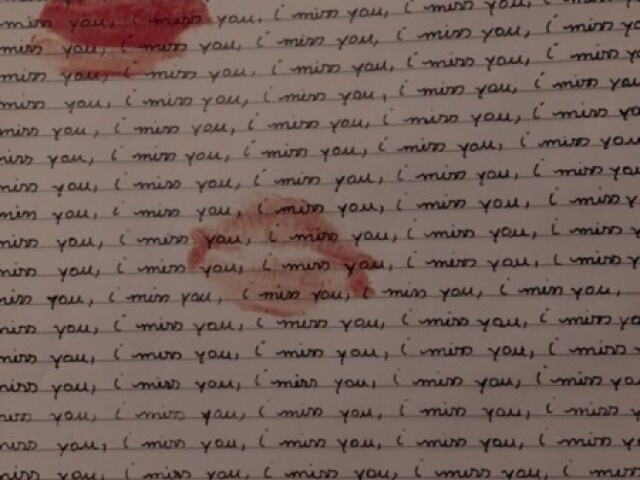 miss you, i miss you, i miss you, i miss you, i miss you
miss you, i miss you, i miss you, i miss you, i miss
miss you, i miss you, i miss you, i miss you, i miss
miss you, i miss you, i miss you, i miss you, i
miss you, i miss you, i miss you, i miss you, i miss
miss you, i miss you, i miss you, i miss you, i miss you
miss you, i miss you, i miss you, i miss you, i miss you
miss you, i miss you, i miss you, i miss you, i miss
miss you, i miss you, i miss you, i miss you, i miss
miss you, i miss you, i miss you, i miss you, i miss
miss you, i miss you, i miss you, i miss you, i miss you,
miss you, i miss you, i miss you, i miss you, i miss
miss you, i miss you, i miss you, i miss you, i miss
miss you, i miss you, i miss you, i miss you, i miss
miss you, i miss you, i miss you, i miss you, i miss
miss you, i miss you, i miss you, i miss you, i miss
miss you, i miss you, i miss you, i miss you, i miss